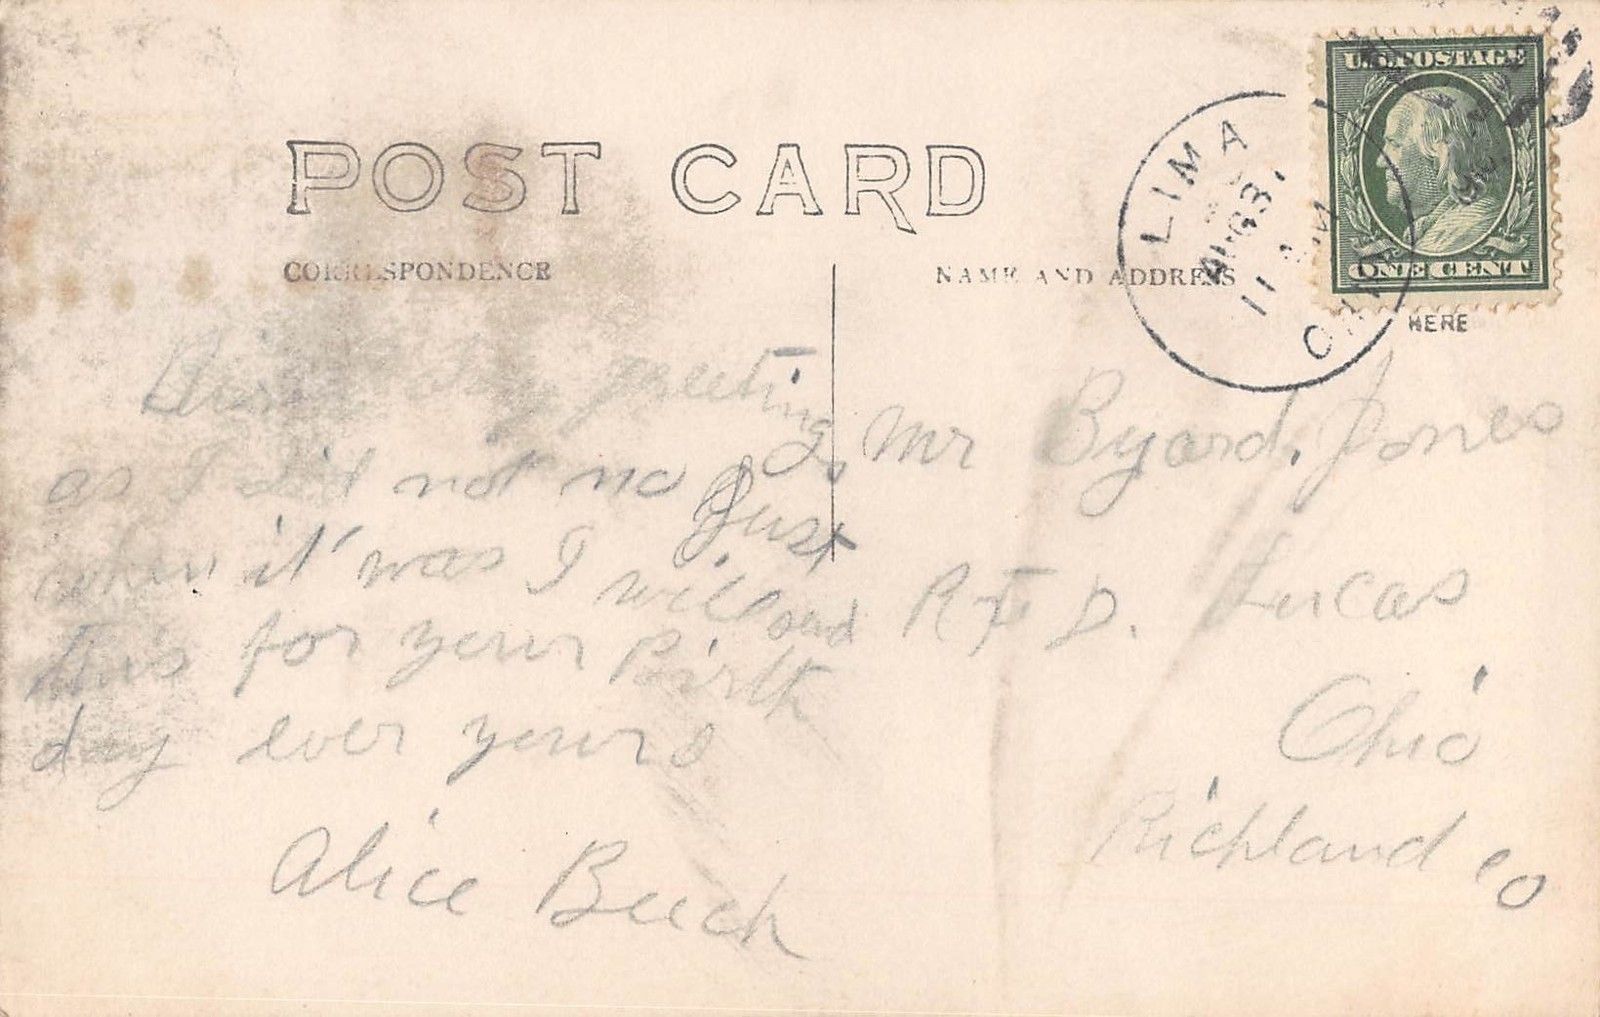 POST CARD
CORRESPONDENCE
NAME AND ADDRESS
U.S. POSTAGE
ONE CENT
HERE
LIMA
AUG 3
11
OHIO
Birth day greeting,
as I did not no Just
when it was I will send
this for your Birth
day ever yours
Alice Beech
Mr Byard. Jones
R F D. Lucas
Ohio
Richland Co